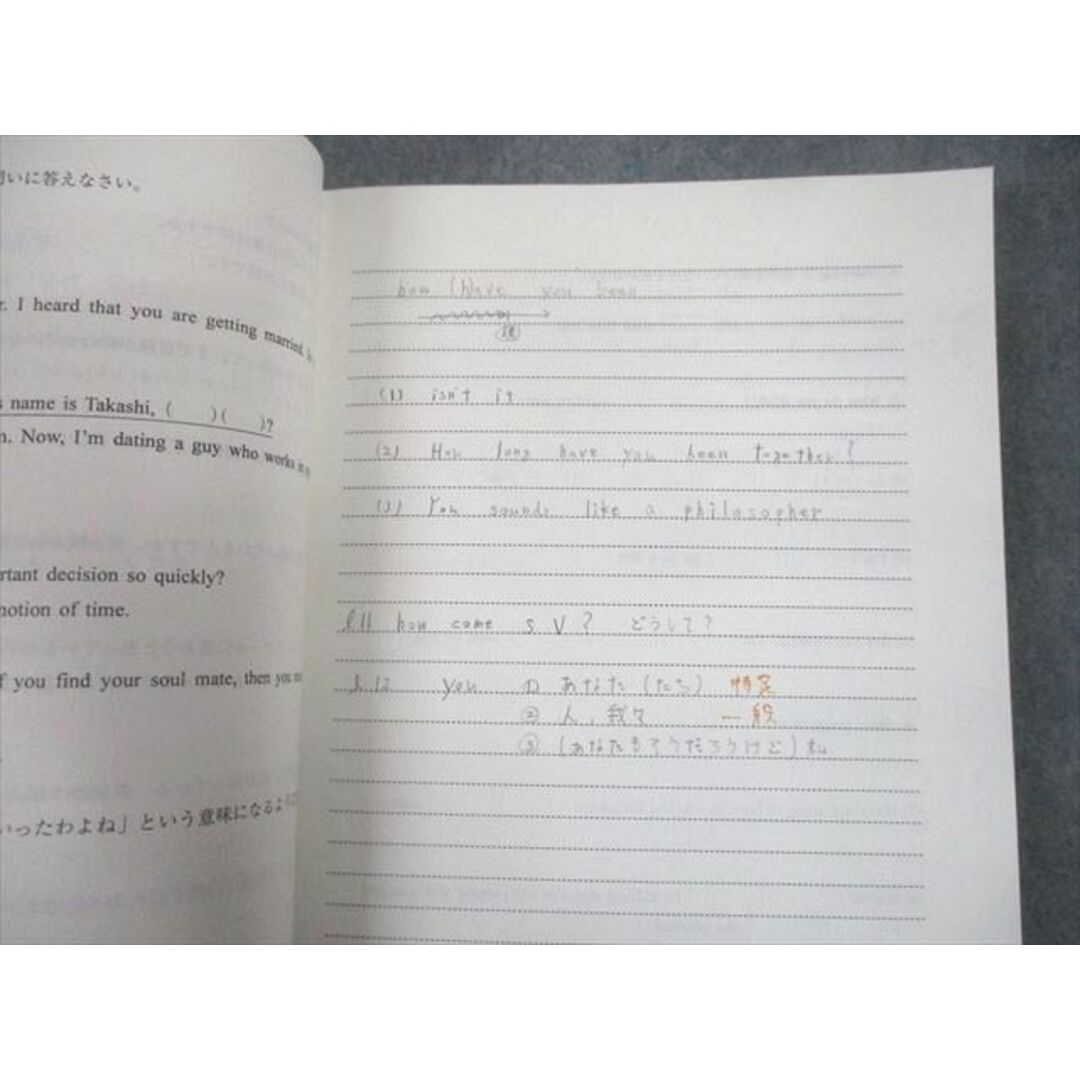 いに答えなさい。
I heard that you are getting married,
name is Takashi, (　　)(　　)?
Now, I'm dating a guy who works
decision so quickly?
notion of time.
you find your soul mate, then you
いったわよね」という意味になるよ
how (have you been
現
(1) isn't it
(2) How long have you been together?
(3) You sounds like a philosopher
l.11 how come S V? どうして?
l.12 you ① あなた(たち) 特定
② 人, 我々 一般
③ (あなたもそうだろうけど)私